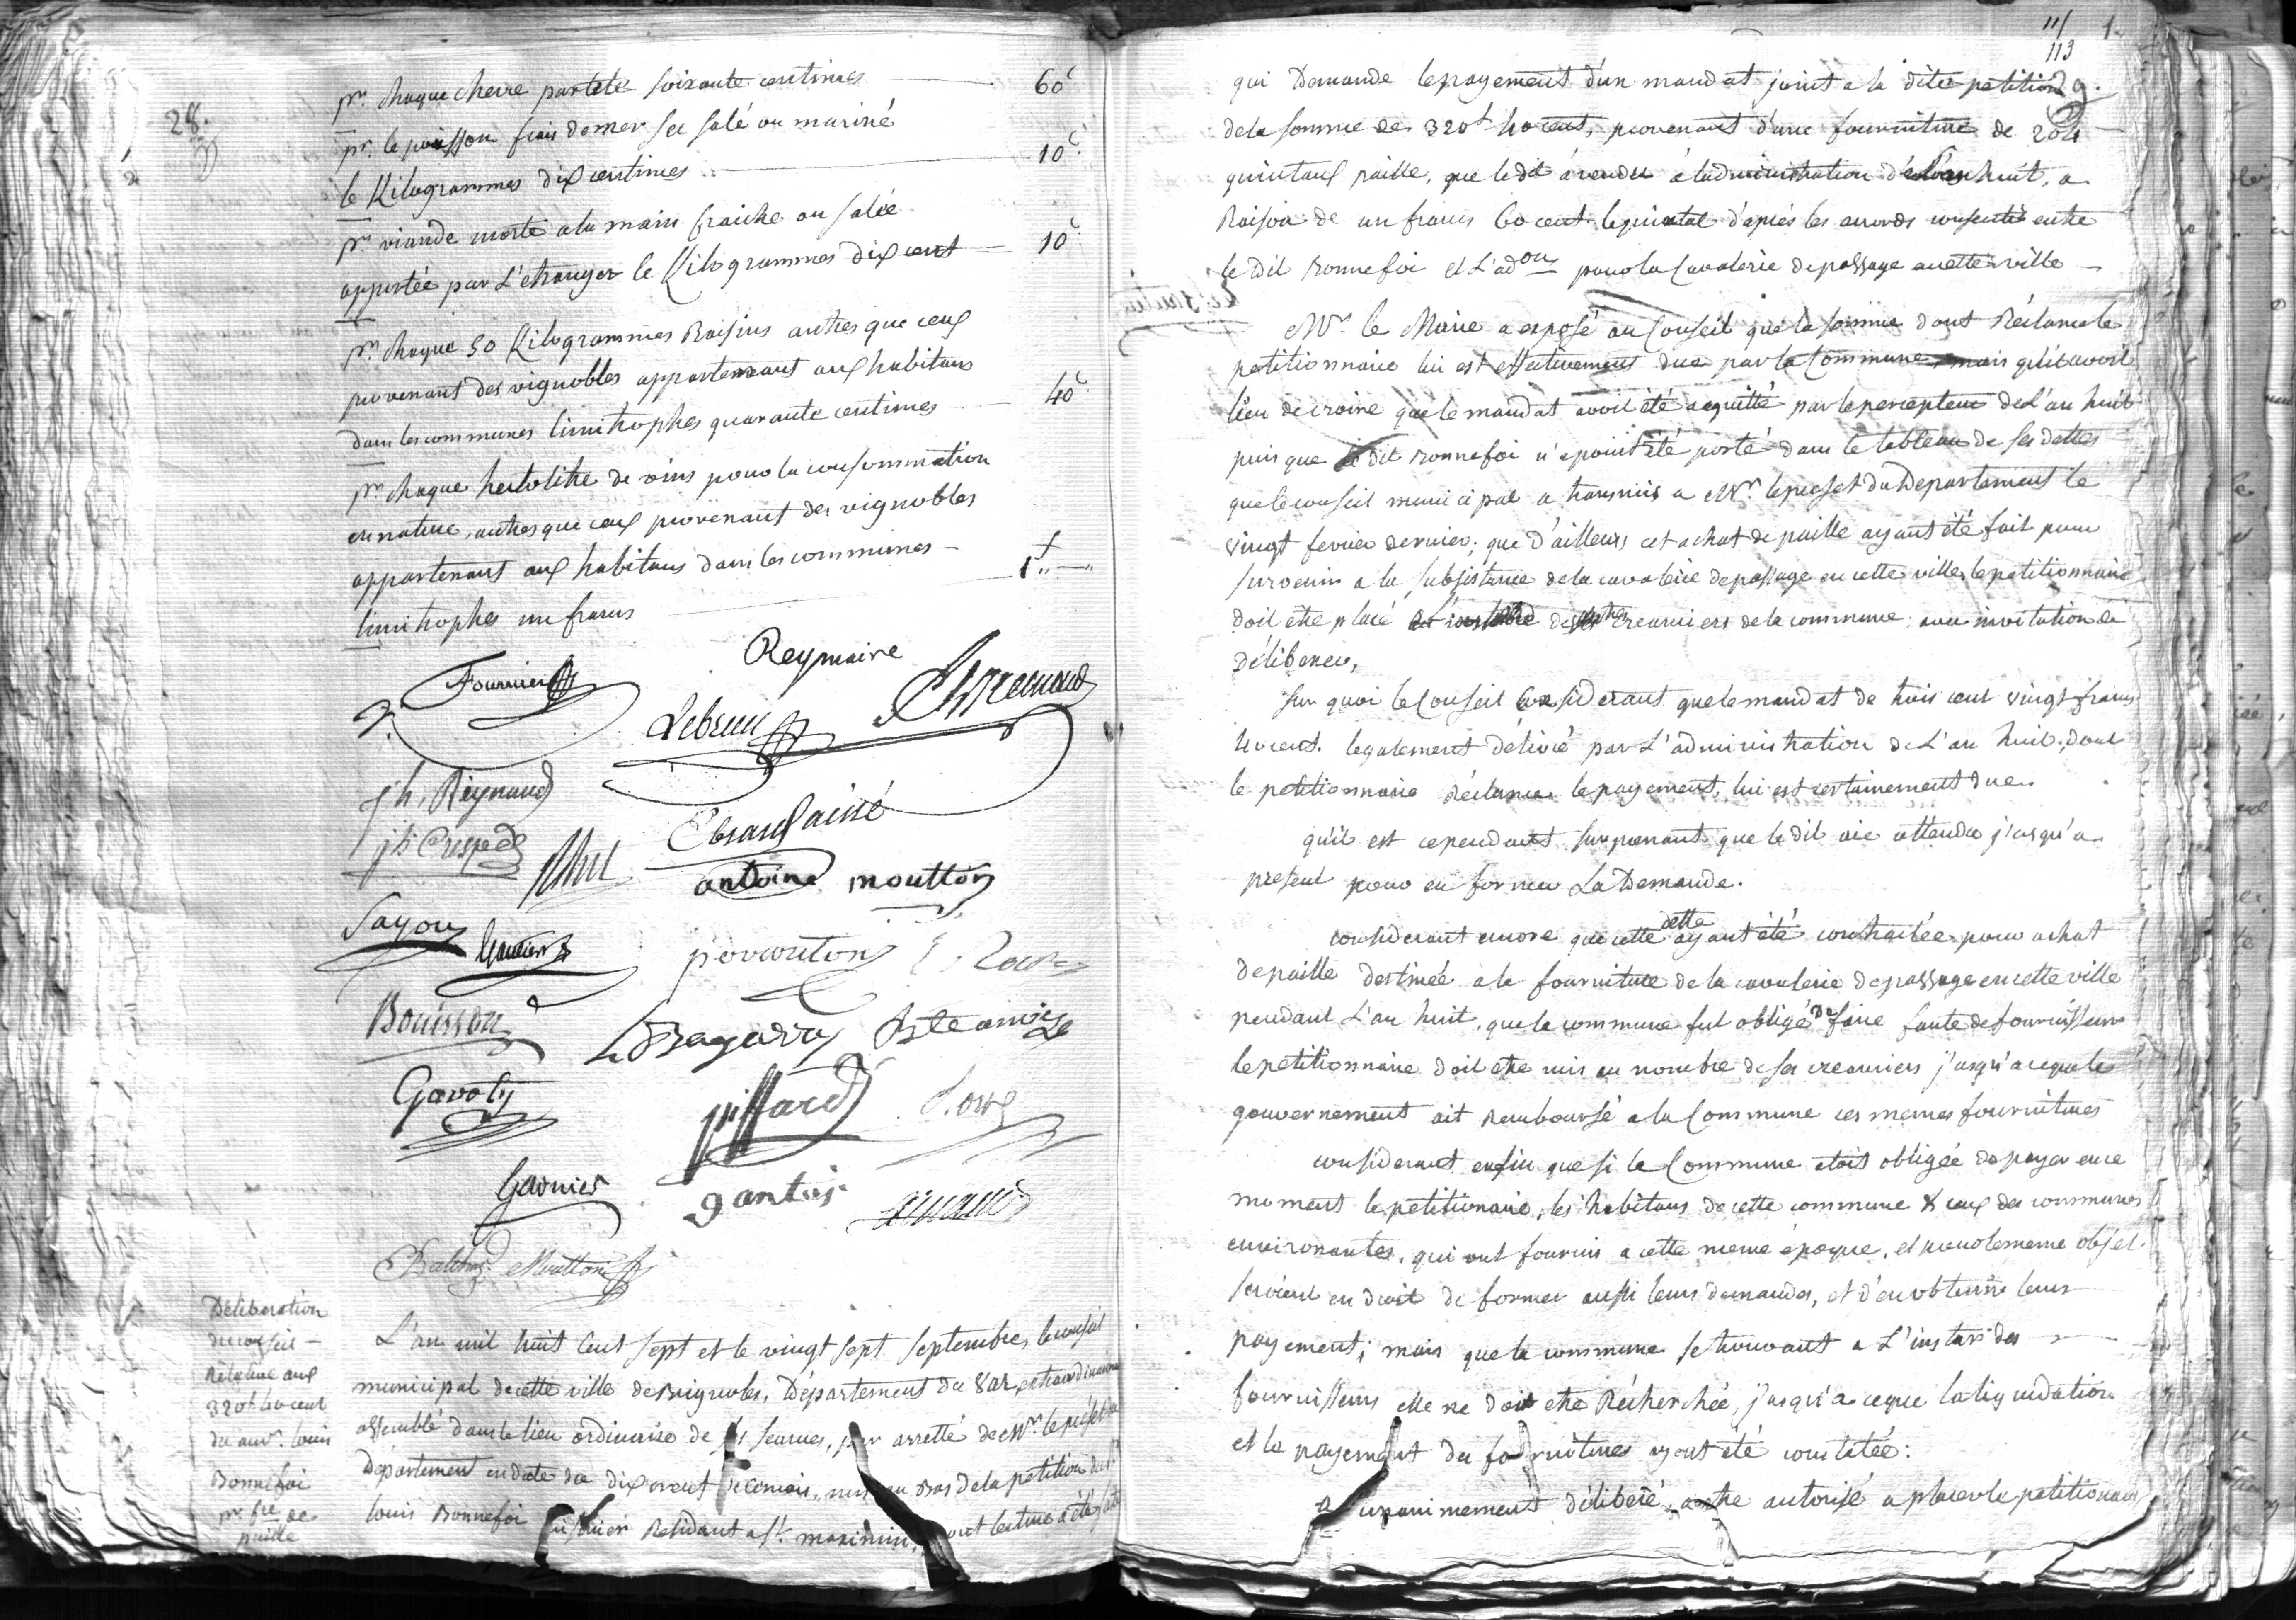 28.
pr. chaque chevre par tete soixante centimes 60c
pr. le poisson frais de mer sec salé ou mariné
le Kilogrammes dix centimes 10c
pr viande morte a la main fraiche ou salée
apportée par L'etranger le Kilogrammes dix cent 10c
pr chaque 50 Kilogrammes Raisins autres que ceux
provenant des vignobles appartenant aux habitans
dans les communes limitrophes quarante centimes 40c
pr chaque hectolitre de vins pour la consommation
en nature, autres que ceux provenant des vignobles
appartenant aux habitans dans les communes
limitrophes un francs 1f " "
Fournier Reymaire
Lebrun
jh. Reynaud
jh Cresped Ebrard ainé
antoine moutton
Sayou Gautier
Bouisson
Gavoty piffard
Garnier gantois
Balthaz. Moutton
Déliberation
du conseil
Relative aux
320f 40 cent
louis
Bonnefoi
pr. fre de
paille
L'an mil huit Cent sept et le vingt sept septembre, le conseil
municipal de cette ville de Brignoles, Département du Var extraordinairement
assemblé dans le lieu ordinaire de ses seances, par arretté de Mr. le préfet du
Département en date du dix neuf de ce mois, mis au bas de la petition du sr
louis Bonnefoi Residant a St. maximin, dont lecture a été faite
11/ 1.
113
qui Demande le payement d'un mandat joint a la dite petition
de la somme de 320f 40 cent, provenant d'une fourniture de 204
quintaux paille, que le dit à vendu à l'administration de l'an huit, a
Raison de un francs 60 cent. le quintal d'après les accords consentis entre
le dit Bonnefoi et L'adon pour la Cavalerie de passage en cette ville
Mr. le Maire a exposé au Conseil que la somme dont Réclame le
petitionnaire lui est effectivement due par la Commune, mais qu'il avoit
lieu de croire que le mandat avoit été acquitté par le percepteur de L'an huit
puis que le dit Bonnefoi n'a point été porté dans le tableau de ses dettes
que le conseil municipal a transmis a Mr. le prefet du Departement le
vingt fevrier dernier; que d'ailleurs cet achat de paille ayant été fait pour
survenir a la subsistance de la cavalerie de passage en cette ville, le petitionnaire
doit etre placé des creanciers de la commune; avec invitation de
déliberer,
sur quoi le Conseil Considerant que le mandat de trois cent vingt francs
40 cent. legalement délivré par L'administration de L'an huit, dont
le petitionnaire Réclame le payement, lui est certainement due.
qu'il est cependant surprenant que le dit aie attendu j'usqu'a
present pour en former La Demande.
considerant encore que cette dette ayant été contractée pour achat
de paille destinée a la fourniture de la cavalerie de passage en cette ville
pendant L'an huit, que la commune fut obligé de faire faute de fournisseur
le petitionnaire doit etre mis au nombre de ses creanciers j'usqu'a ce que le
gouvernement ait Remboursé a la Commune ces memes fournitures
considerant enfin que si la Commune etoit obligée de payer en ce
moment le petitionnaire, les habitans de cette commune & ceux des communes
environantes, qui ont fournis a cette meme époque, et pour le meme objet
seroient en droit de former aussi leurs demandes, et d'en obtenir leur
payement; mais que la commune se trouvant a L'instar des
fournisseurs elle ne doit etre Récherchée, j'usqu'a ce que la liquidation
et le payement des fournitures ayent été constatée:
a unanimement déliberé autorisé a placer le petitionnaire